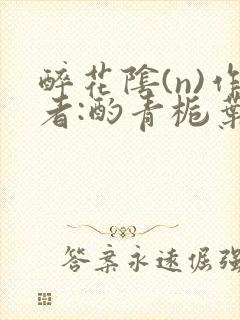 醉花陰(n)作
者:酌青栀葉
答案永远倔强